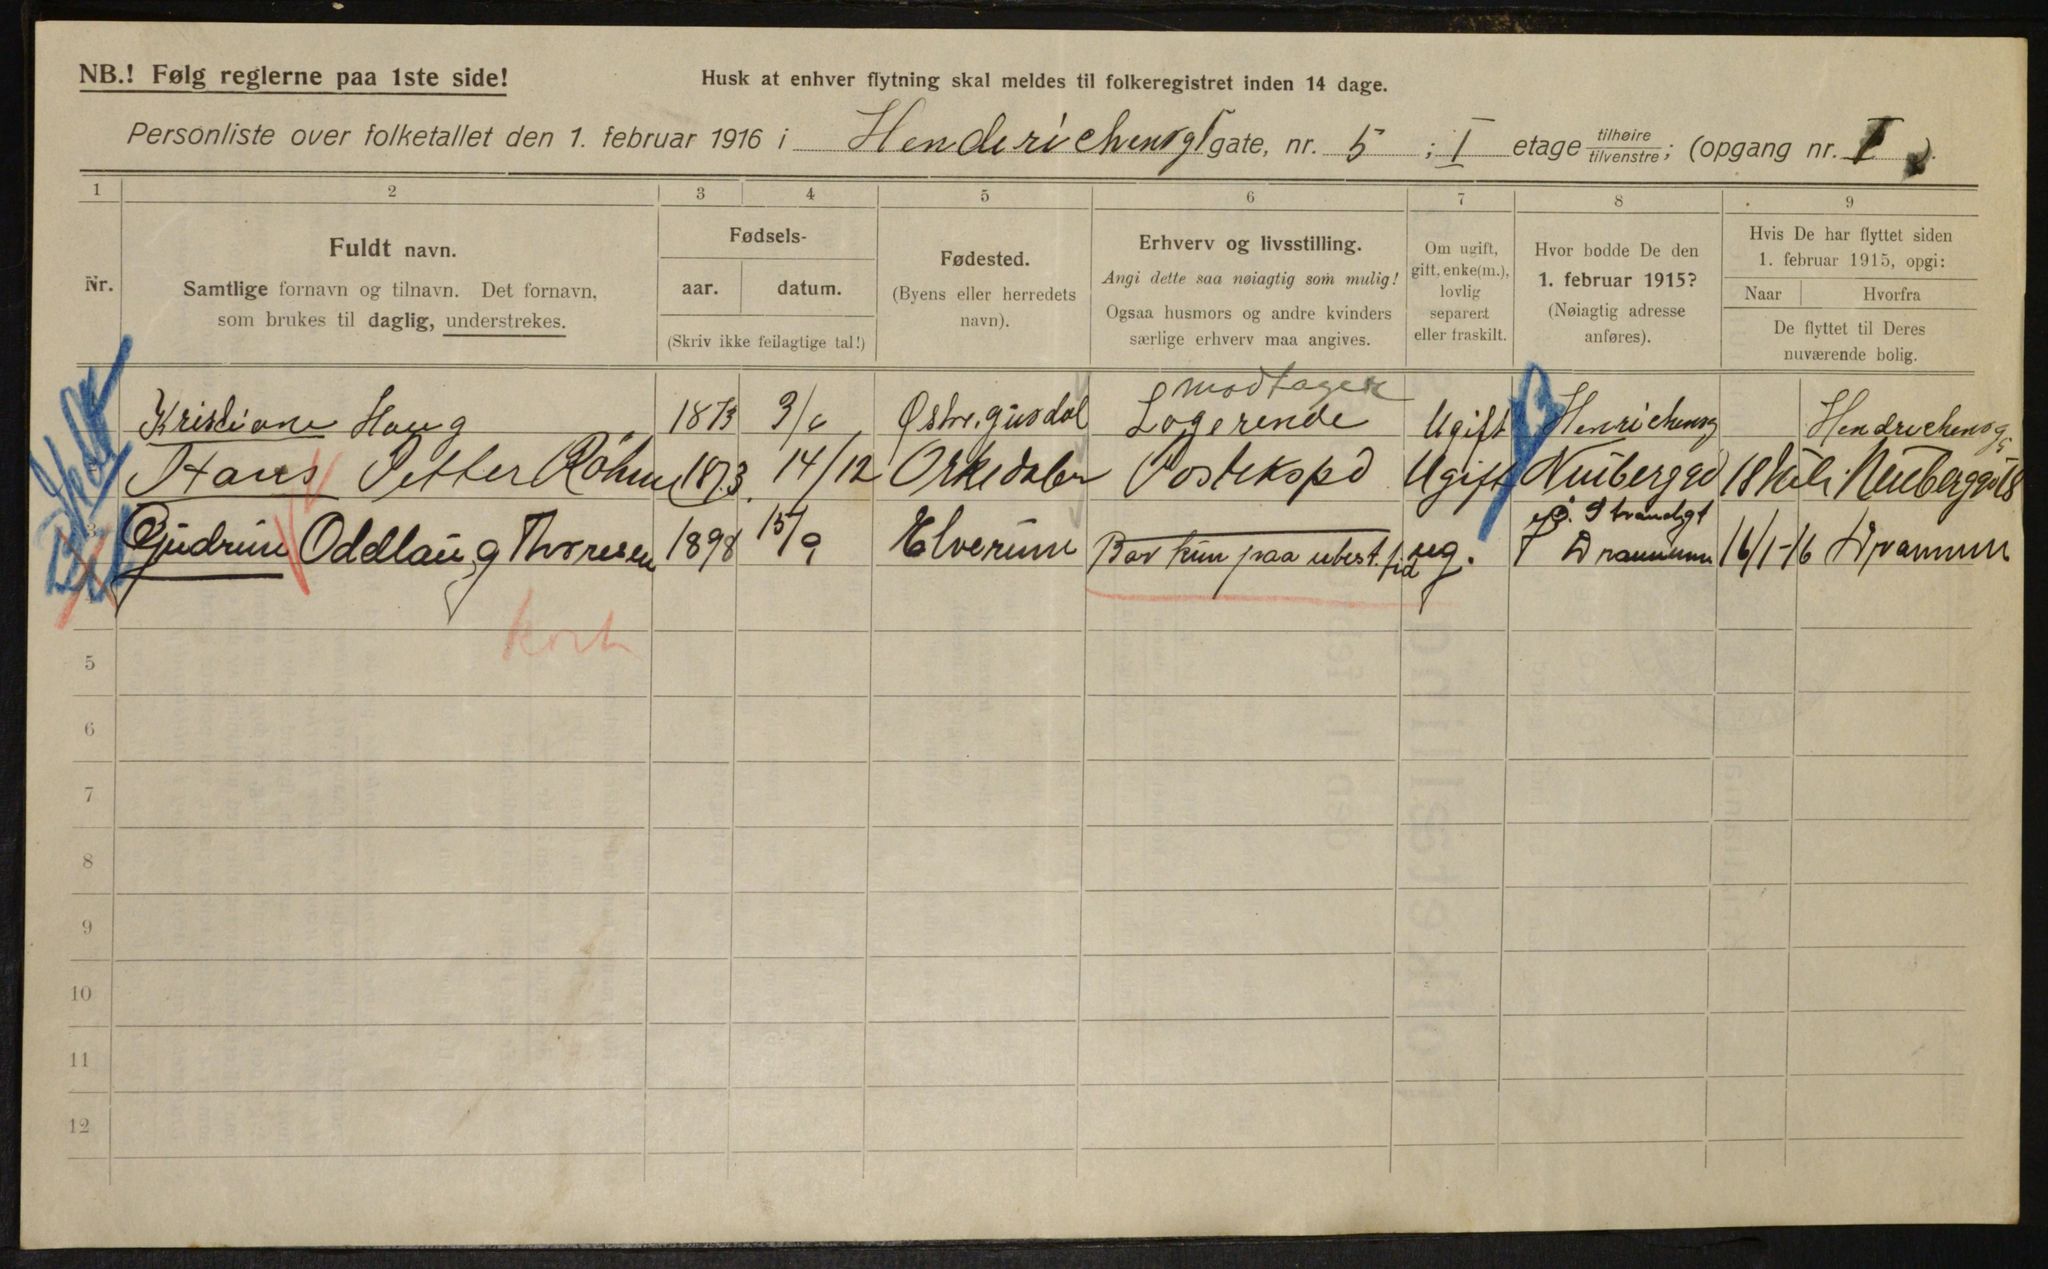 NB.! Følg reglerne paa 1ste side!
Husk at enhver flytning skal meldes til folkeregistret inden 14 dage.
Personliste over folketallet den 1. februar 1916 i Henderichensgt gate, nr. 5 ; I etage tilhøire/tilvenstre; (opgang nr. I ).
1 2 3 4 5 6 7 8 9
Nr.
Fuldt navn.
Samtlige fornavn og tilnavn. Det fornavn,
som brukes til daglig, understrekes.
Fødsels-
aar. datum.
(Skriv ikke feilagtige tal!)
Fødested.
(Byens eller herredets
navn).
Erhverv og livsstilling.
Angi dette saa nøiagtig som mulig!
Ogsaa husmors og andre kvinders
særlige erhverv maa angives.
Om ugift,
gift, enke(m.),
lovlig
separert
eller fraskilt.
Hvor bodde De den
1. februar 1915?
(Nøiagtig adresse
anføres).
Hvis De har flyttet siden
1. februar 1915, opgi:
Naar Hvorfra
De flyttet til Deres
nuværende bolig.
modtager
Kristiane Haug 1873 Østre. Gusdal Logerende Ugift Henrichensg Hendrichensg
Hans Petter Röhme 1873. 14/12 Orkedalen Postekspd Ugift Nuiberggd 18 Neuberggd 18
Gudrun Oddlaug Thoresen 1898 15/9 Elverum Bor kun paa ubest. tid ug. Strandgt
Drammen 16/1-16 Drammen
kort
5
6
7
8
9
10
11
12